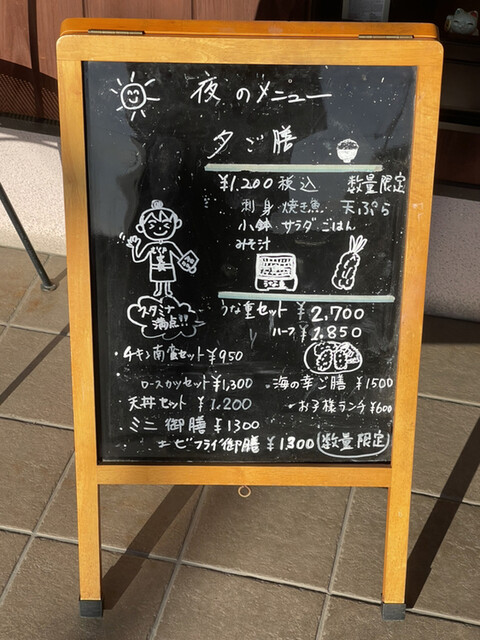 夜のメニュー
夕ご膳
¥1.200 税込 数量限定
刺身 焼き魚 天ぷら
小鉢 サラダ ごはん
みそ汁
うな重セット ¥2,700
ハーフ ¥1,850
スタミナ
満点!!
・チキン南蛮セット ¥950
ロースカツセット ¥1,300
・海の幸ご膳 ¥1500
天丼セット ¥1.200
・お子様ランチ ¥600
・ミニ御膳 ¥1300
エビフライ御膳 ¥1300 数量限定